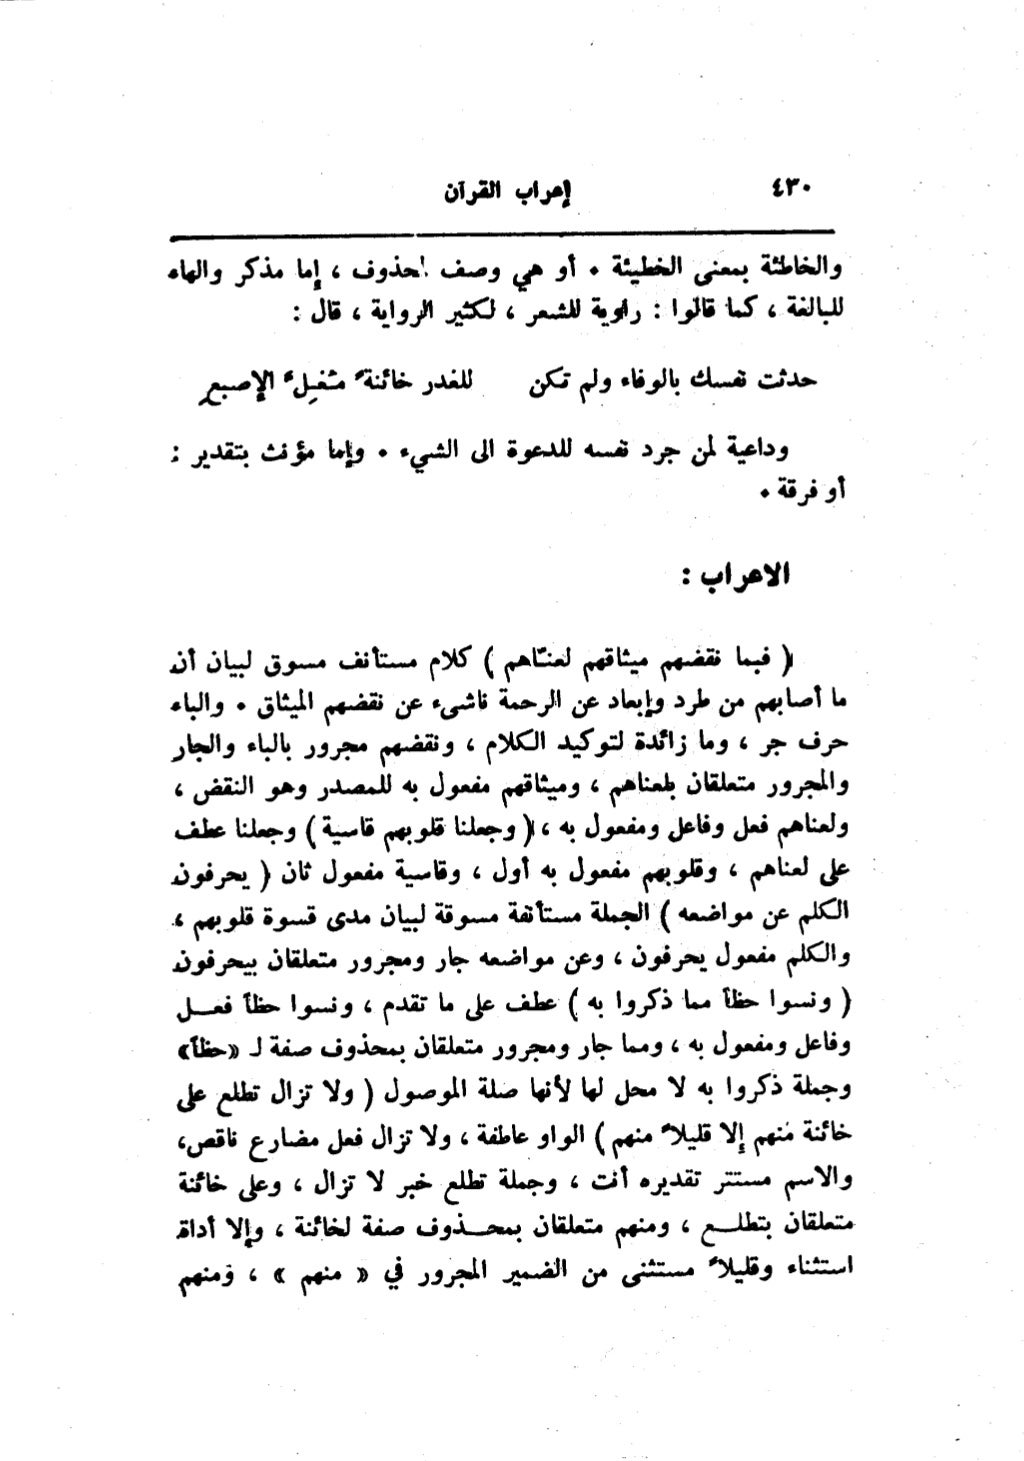 ٤٣٠ إعراب القرآن
والخاطئة بمعنى الخطيئة ٠ أو هي وصف لمحذوف ، إما مذكر والهاء
للمبالغة ، كما قالوا : راوية للشعر ، لكثير الرواية ، قال :
حدثت نفسك بالوفاء ولم تكن للغدر خائنةً مُغِلَّ الإصبع
وداعية لمن جرد نفسه للدعوة الى الشيء ٠ وإما مؤنث بتقدير :
أو فرقة ٠
الاعراب :
( فبما نقضهم ميثاقهم لعنّاهم ) كلام مستأنف مسوق لبيان أن
ما أصابهم من طرد وإبعاد عن الرحمة ناشىء عن نقضهم الميثاق ٠ والباء
حرف جر ، وما زائدة لتوكيد الكلام ، ونقضهم مجرور بالباء والجار
والمجرور متعلقان بلعناهم ، وميثاقهم مفعول به للمصدر وهو النقض ،
ولعناهم فعل وفاعل ومفعول به ، ( وجعلنا قلوبهم قاسية ) وجعلنا عطف
على لعناهم ، وقلوبهم مفعول به أول ، وقاسية مفعول ثان ( يحرفون
الكلم عن مواضعه ) الجملة مستأنفة مسوقة لبيان مدى قسوة قلوبهم ،
والكلم مفعول يحرفون ، وعن مواضعه جار ومجرور متعلقان بيحرفون
( ونسوا حظاً مما ذكروا به ) عطف على ما تقدم ، ونسوا حظاً فعــل
وفاعل ومفعول به ، ومما جار ومجرور متعلقان بمحذوف صفة لـ «حظاً»
وجملة ذكروا به لا محل لها لأنها صلة الموصول ( ولا تزال تطلع على
خائنة منهم إلا قليلاً منهم ) الواو عاطفة ، ولا تزال فعل مضارع ناقص،
والاسم مستتر تقديره أنت ، وجملة تطلع خبر لا تزال ، وعلى خائنة
متعلقان بتطلــع ، ومنهم متعلقان بمحــذوف صفة لخائنة ، وإلا أداة
استثناء وقليلاً مستثنى من الضمير المجرور في « منهم » ، ومنهم